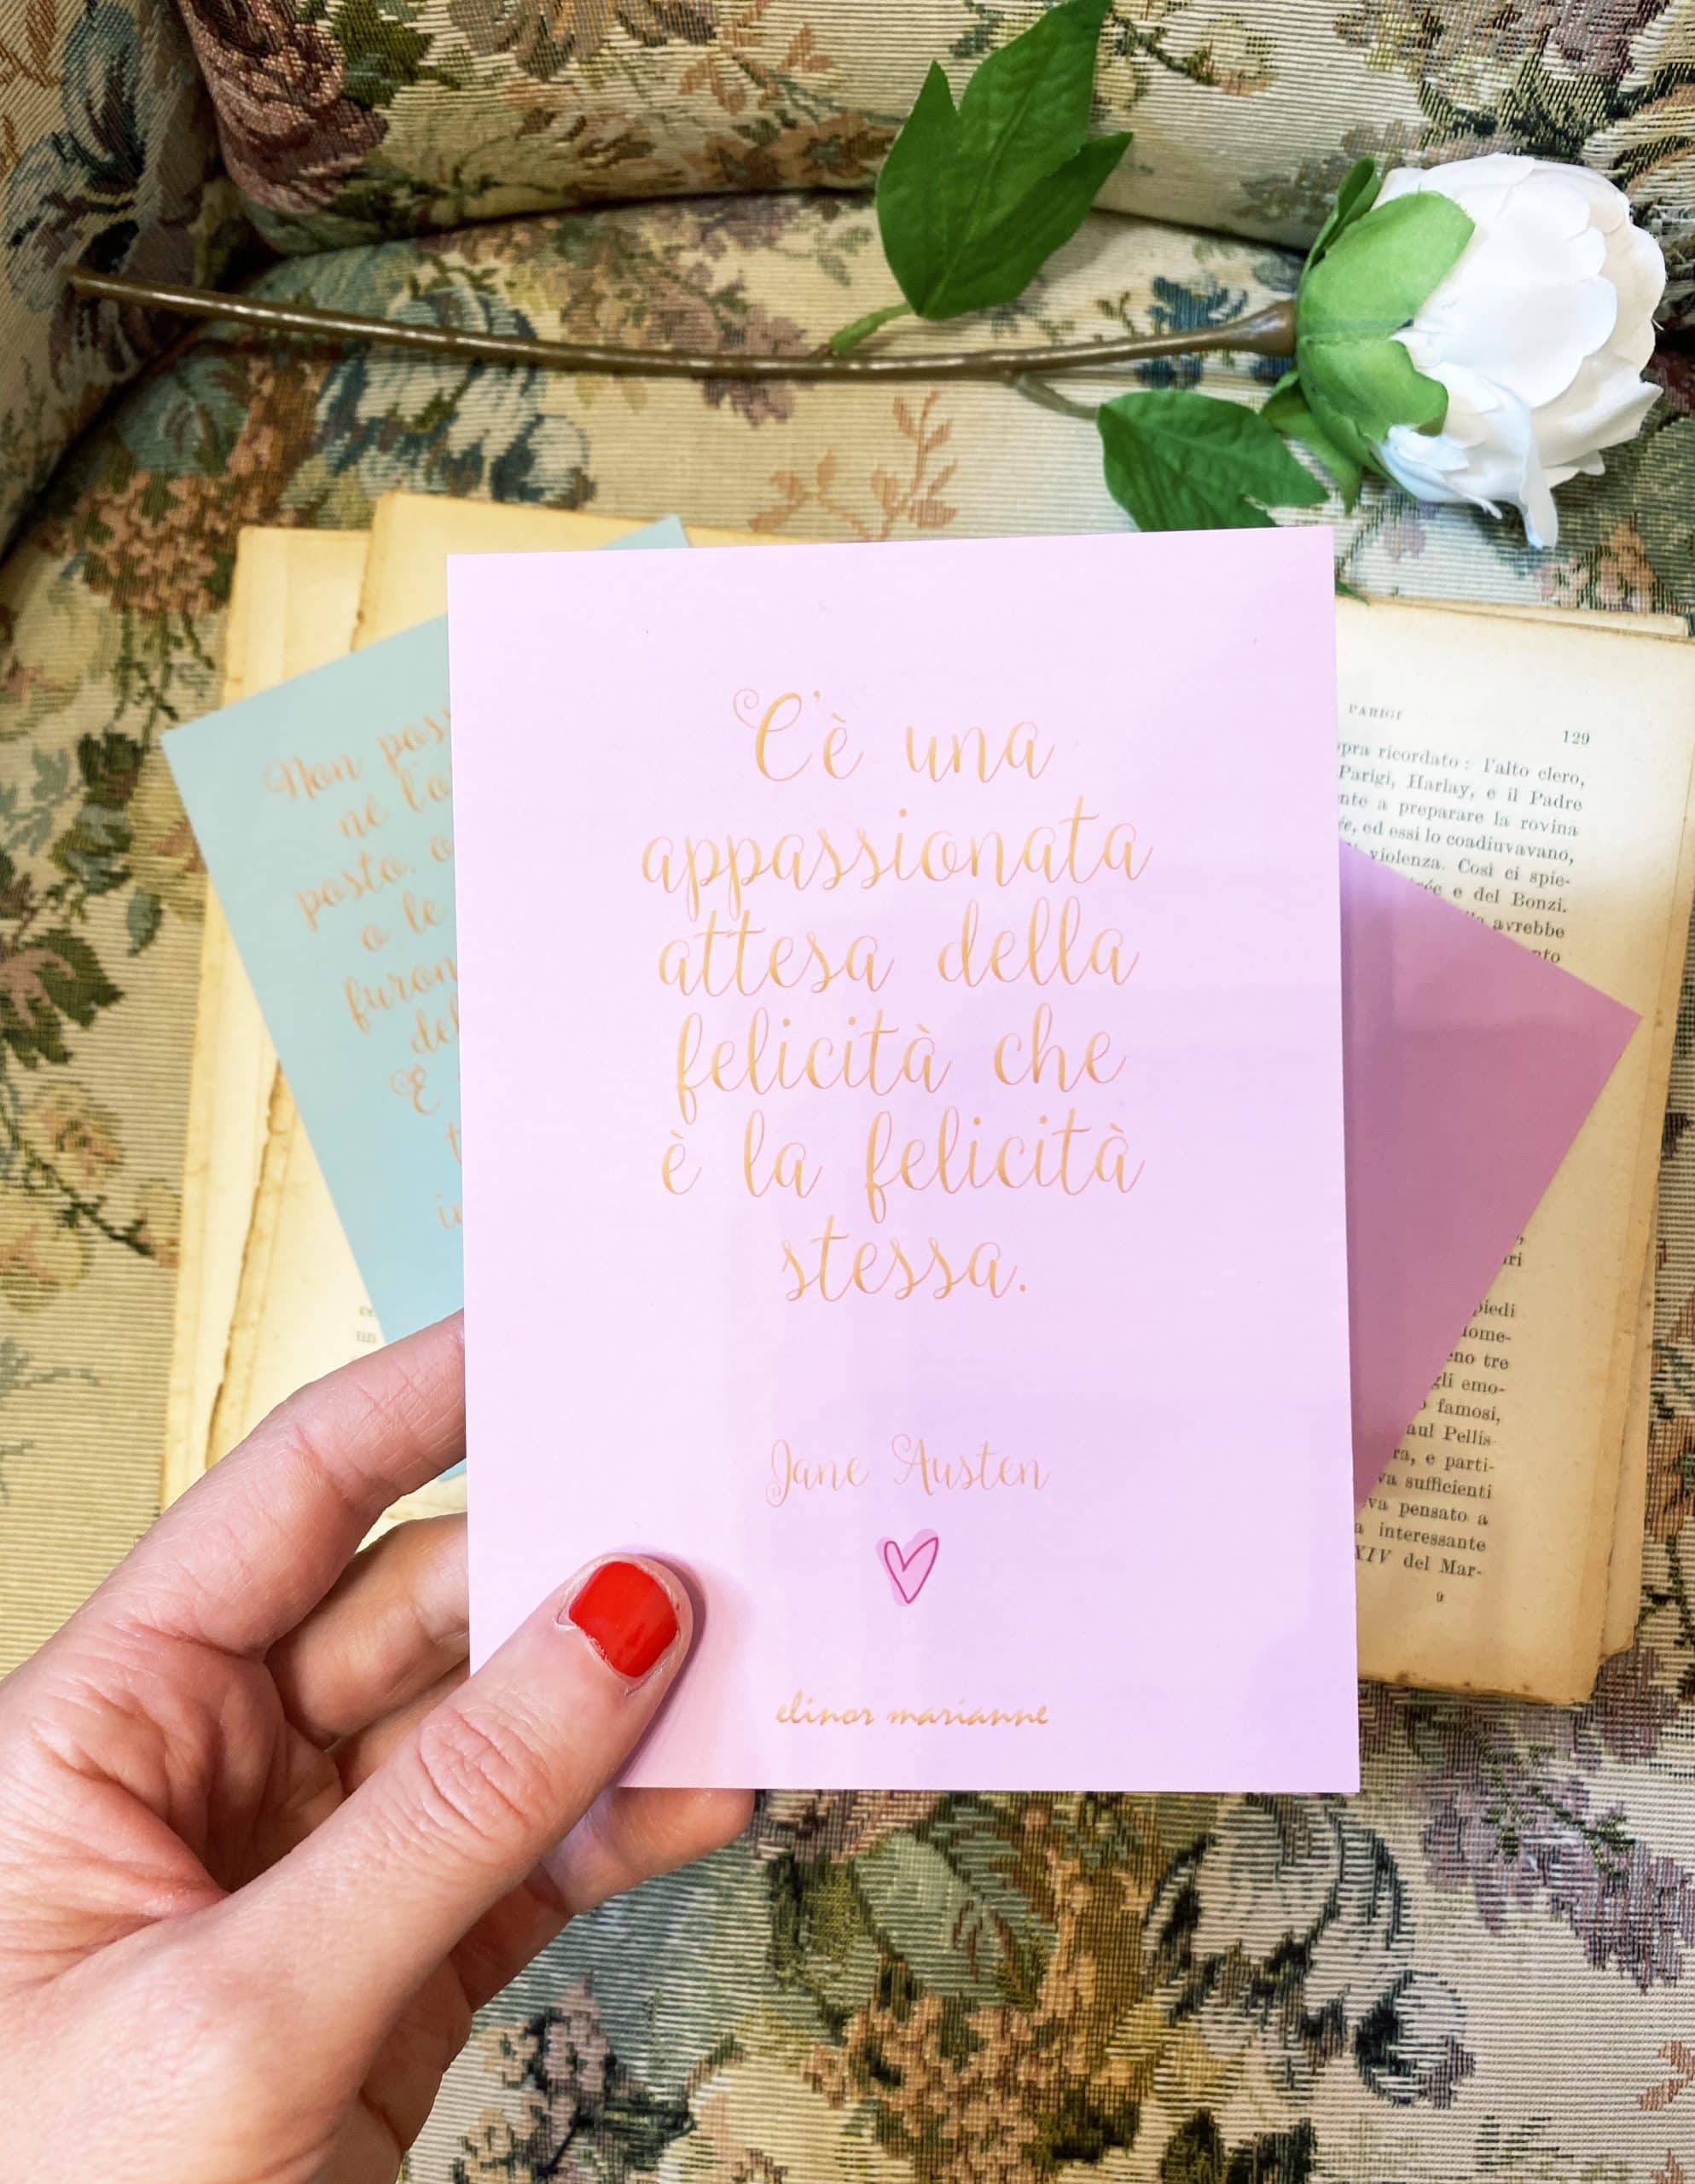 C'è una
appassionata
attesa della
felicità che
è la felicità
stessa.
Jane Austen
elinor marianne
Non
né
posto,
o le
E
PARIGI
129
ricordato: l'alto clero,
Parigi, Harlay, e il Padre
a preparare la rovina
ed essi lo coadiuvavano,
violenza. Così ci spie-
e del Bonzi.
avrebbe
tre
gli emo-
famosi,
Pellis-
e parti-
sufficienti
pensato a
interessante
XIV del Mar-
9
un